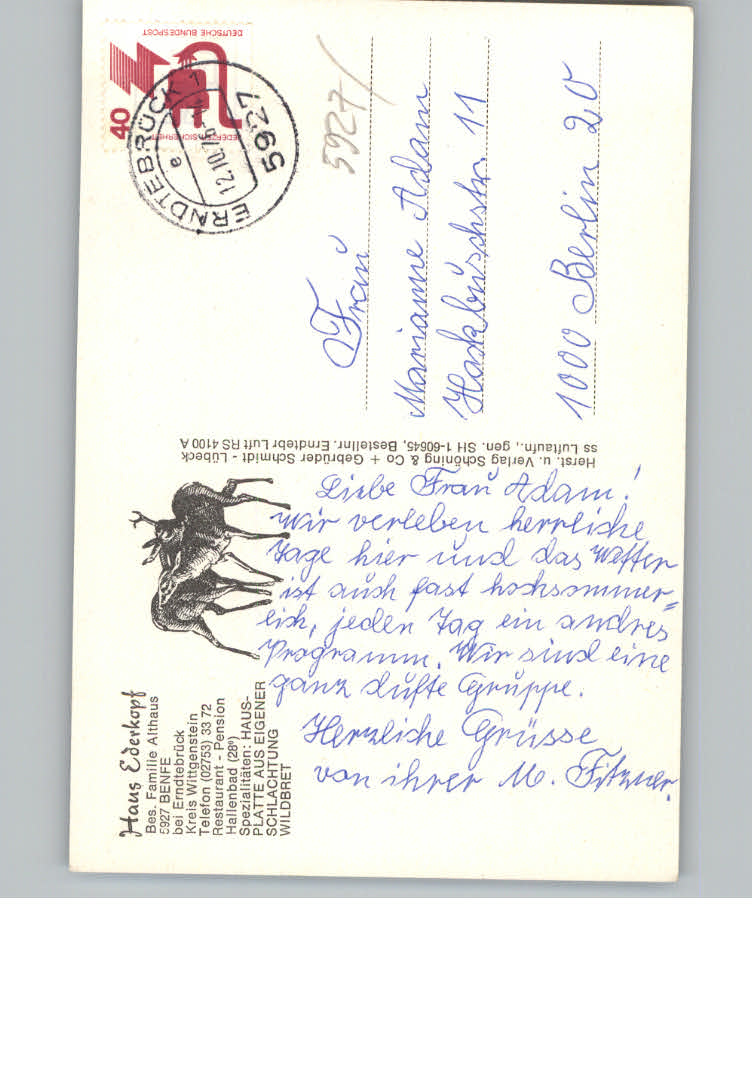 Haus Ederkopf
Bes. Familie Althaus
5927 BENFE
bei Erndtebrück
Kreis Wittgenstein
Telefon (02753) 33 72
Restaurant - Pension
Hallenbad (28°)
Spezialitäten: HAUS-
PLATTE AUS EIGENER
SCHLACHTUNG
WILDBRET
Liebe Frau Adam!
Wir verleben herrliche
Tage hier und das Wetter
ist auch fast hochsommer=
lich, jeden Tag ein andres
Programm. Wir sind eine
ganz dufte Gruppe.
Herzliche Grüsse
von ihrer M. Fitzner.
Herst. u. Verlag Schöning & Co + Gebrüder Schmidt - Lübeck
ss Luftaufn., gen. SH 1-60645, Bestellnr. Erndtebr Luft RS 4100 A
DEUTSCHE BUNDESPOST
JEDERZEIT SICHERHEIT
40
5927 ERNDTEBRÜCK 1
a
12.10.
5927
Frau
Marianne Adam
Hackbuschstr. 11
1000 Berlin 20